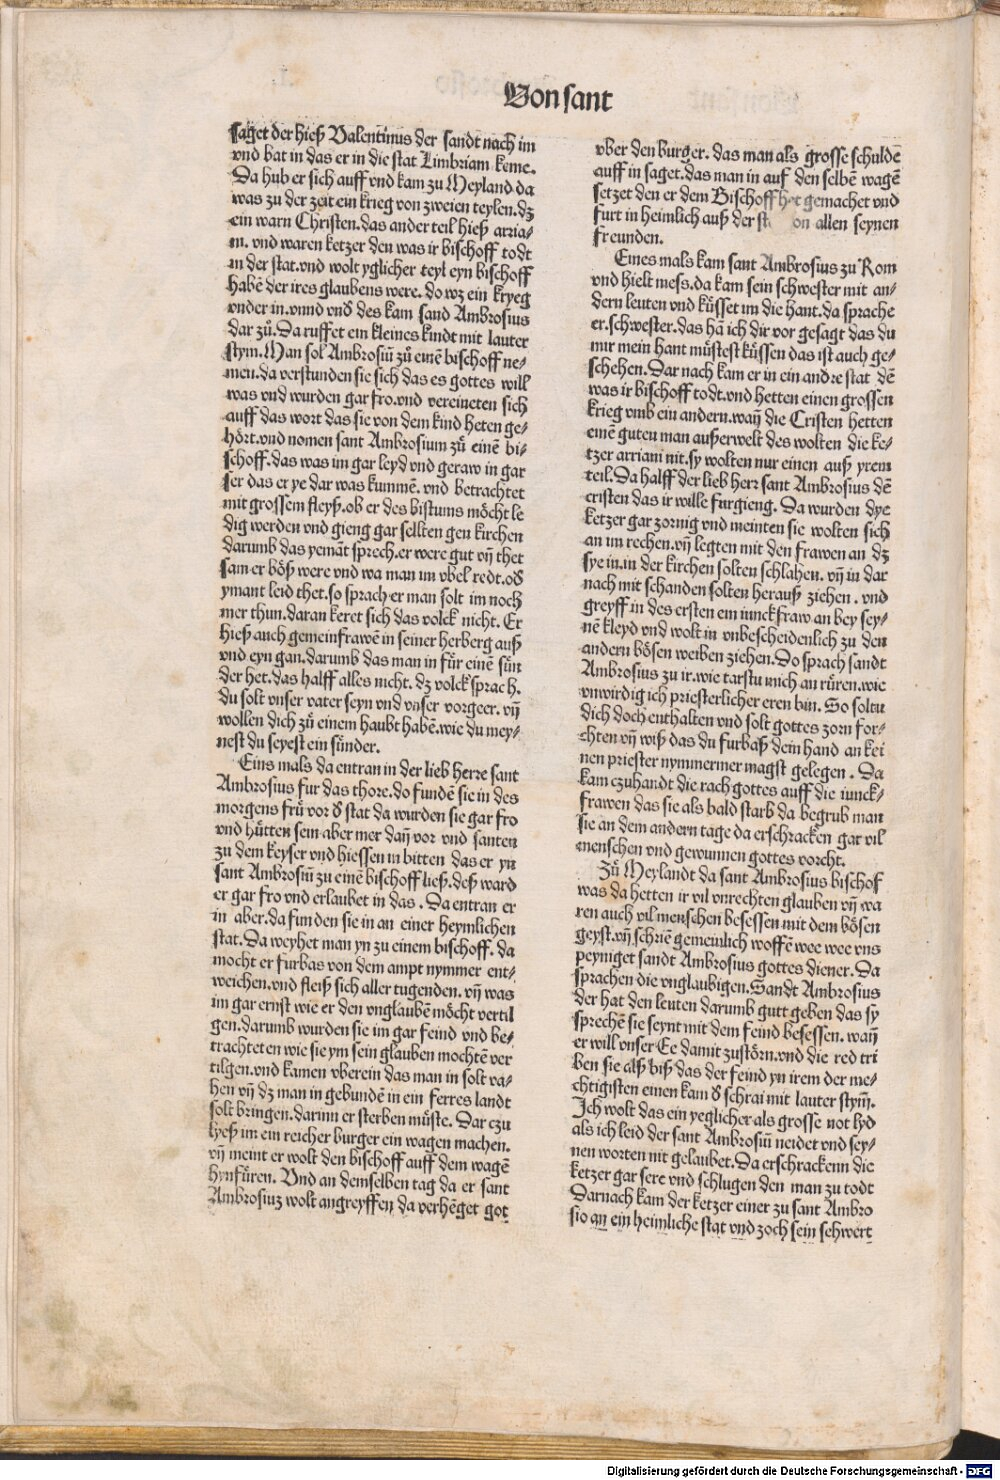 Von sant
saget der hieß Valentinus der sandt nach im
vnd bat in das er in die stat Limbriam keme.
Da hub er sich auff vnd kam zu Meyland da
was zu der zeit ein krieg von zweien teylen.dz
ein warn Christen.das ander teil hieß arria⸗
ni. vnd waren ketzer den was ir bischoff todt
in der stat.vnd wolt yglicher teyl eyn bischoff
habē der ires glaubens were. do wz ein kryeg
vnder in.vnnd vnd des kam sand Ambrosius
dar zů.Da ruffet ein kleines kindt mit lauter
stym.Man sol Ambrosiū zů einē bischoff ne⸗
men.da verstunden sie sich das es gottes will
was vnd wurden gar fro.vnd vereineten sich
auff das wort das sie von dem kind heten ge⸗
hört.vnd nomen sant Ambrosium zů einē bi⸗
schoff.das was im gar leyd vnd geraw in gar
ser das er ye dar was kummē. vnd betrachtet
mit grossem fleyß.ob er des bistums möcht le
dig werden vnd gieng gar sellten gen kirchen
darumb das yemāt sprech.er were gut vñ thet
sam er böß were vnd wa man im vbel redt.od̕
ymant leid thet.so sprach er man solt im noch
mer thun.daran keret sich das volck nicht. Er
hieß auch gemein frawē in seiner herberg auß
vnd eyn gan.darumb das man in für einē sün
der het.das halff alles nicht. dz volck sprach.
du solt vnser vater seyn vnd vnser vorgeer. vñ
wollen dich zů einem haubt habē.wie du mey⸗
nest du seyest ein sünder.
Eins mals da entran in der lieb herre sant
Ambrosius fur das thore.do fundē sie in des
morgens frů vor d̕ stat da wurden sie gar fro
vnd hütten sein aber mer dañ vor vnd santen
zu dem keyser vnd hiessen in bitten das er yn
sant Ambrosiū zu einē bischoff ließ.deß ward
er gar fro vnd erlaubet in das . Da entran er
in aber.da funden sie in an einer heymlichen
stat.Da weyhet man yn zu einem bischoff. da
mocht er furbas von dem ampt nymmer ent⸗
weichen.vnd fleiß sich aller tugenden. vñ was
im gar ernst wie er den vnglaubē möcht vertil
gen.darumb wurden sie im gar feind vnd be⸗
trachteten wie sie ym sein glauben mochtē ver
tilgen.vnd kamen vberein das man in solt va⸗
hen vñ dz man in gebundē in ein ferres landt
solt bringen.darinn er sterben müste. Dar czu
lyeß im ein reicher burger ein wagen machen.
vñ meint er wolt den bischoff auff dem wagē
hynfüren. Vnd an demselben tag da er sant
Ambrosiuz wolt angreyffen da verhēget got
vber den burger. das man als grosse schuldē
auff in saget.das man in auf den selbē wagē
setzet den er dem Bischoff het gemachet vnd
furt in heimlich auß der on allen seynen
freunden.
Eines mals kam sant Ambrosius zu Rom
vnd hielt mess.da kam sein schwester mit an⸗
dern leuten vnd küsset im die hant.da sprache
er.schwester.das hā ich dir vor gesagt das du
mir mein hant müstest küssen das ist auch ge⸗
schehen. Dar nach kam er in ein andre stat dē
was ir bischoff todt.vnd hetten einen grossen
krieg vmb ein andern.wañ die Cristen hetten
einē guten man außerwelt des wolten die ke⸗
tzer arriani nit.sy wolten nur einen auß yrem
teil.Da halff der lieb herr sant Ambrosius dē
cristen das ir wille furgieng. Da wurden dye
ketzer gar zornig vnd meinten sie wolten sich
an im rechen.vñ legten mit den frawen an dz
sye in.in der kirchen solten schlahen. vñ in dar
nach mit schanden solten herauß ziehen . vnd
greyff in des ersten ein iunckfraw an bey sey⸗
nē kleyd vnd wolt in vnbescheidenlich zu den
andern bösen weiben ziehen.Do sprach sandt
Ambrosius zu ir.wie tarstu mich an rüren.wie
vnwirdig ich priesterlicher eren bin. So soltu
dich doch enthalten vnd solt gottes zorn for⸗
chten vñ wiß das du furbaß dein hand an kei
nen priester nymmermer magst gelegen . Da
kam czuhandt die rach gottes auff die iunck⸗
frawen das sie als bald starb da begrub man
sie an dem andern tage da erschracken gar vil
menschen vnd gewunnen gottes vorcht.
Zů Meylandt da sant Ambrosius bischof
was da hetten ir vil vnrechten glauben vñ wa
ren auch vil menschen besessen mit dem bösen
geyst.vñ schriē gemeinlich woffē wee wee vns
peyniget sandt Ambrosius gottes diener. Da
sprachen die vnglaubigen.Sandt Ambrosius
der hat den leuten darumb gutt geben das sy
sprechē sie seynt mit dem feind besessen. wañ
er will vnser Ee damit zustörn.vnd die red tri
ben sie alß biß das der feind yn irem der me⸗
chtigisten einen kam d̕ schrai mit lauter styñ.
Ich wolt das ein yeglicher als grosse not lyd
als ich leid der sant Ambrosiū neidet vnd sey⸗
nen worten nit gelaubet.Da erschrackenn die
ketzer gar sere vnd schlugen den man zu todt
Darnach kam der ketzer einer zu sant Ambro
sio an ein heimliche stat vnd zoch sein schwert
Digitalisierung gefördert durch die Deutsche Forschungsgemeinschaft - DFG